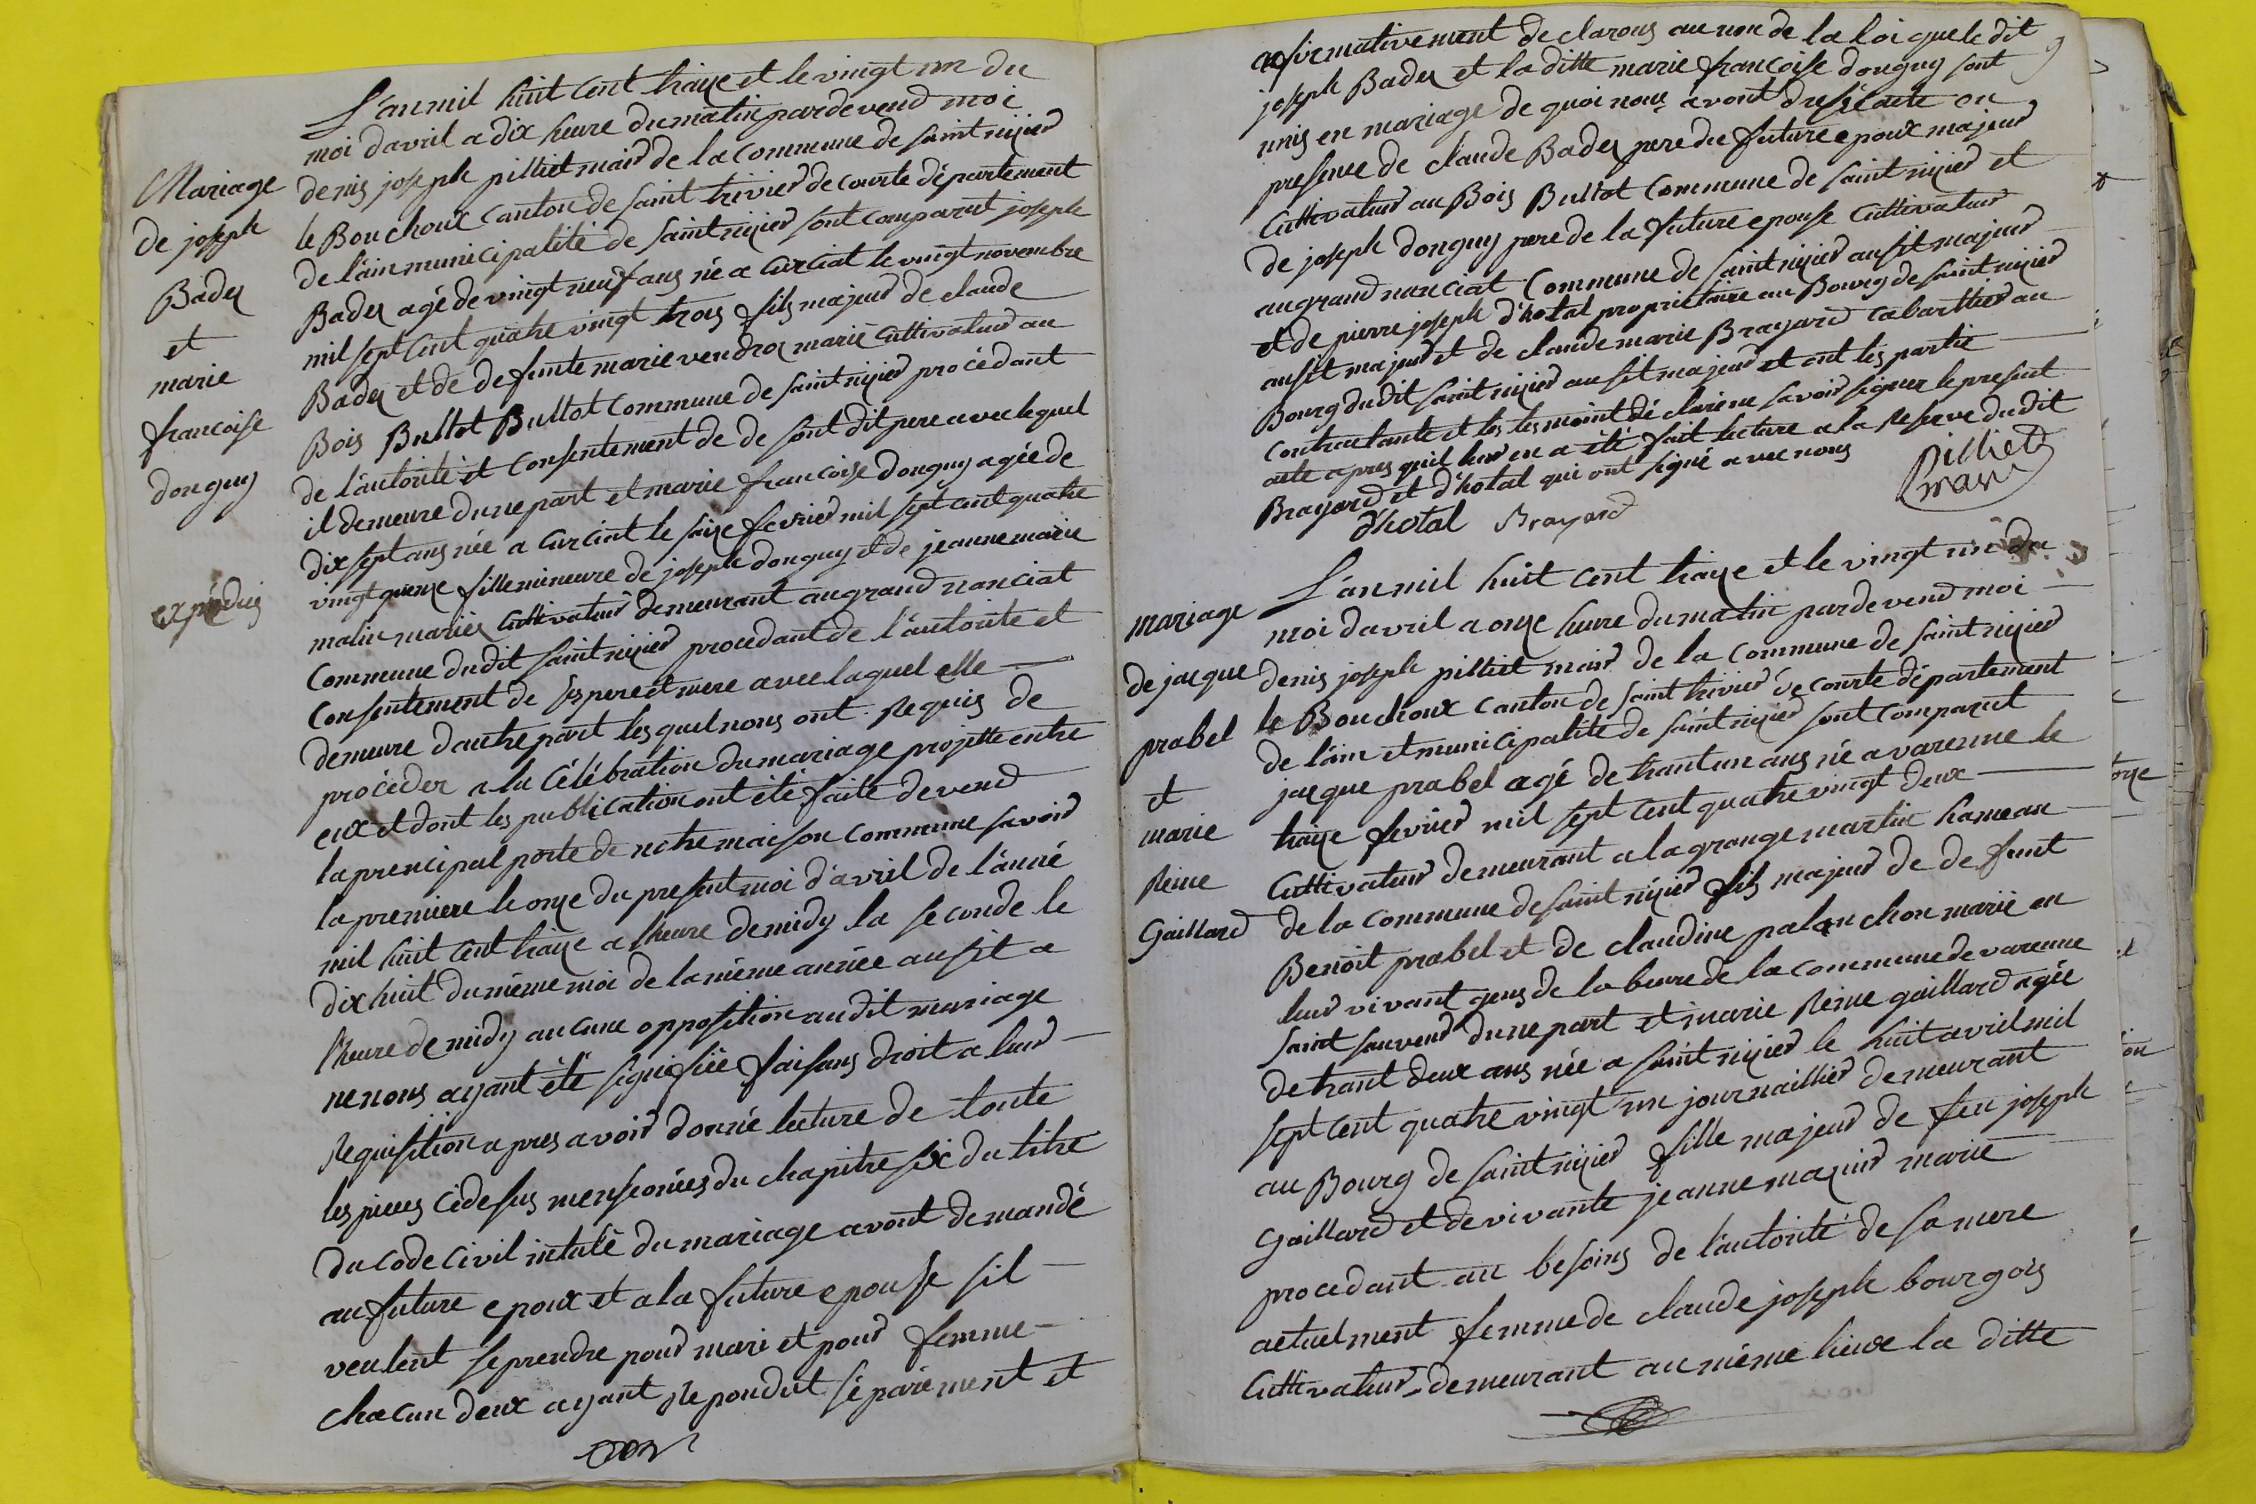 L'an mil huit cent traize et le vingt un du
moi d'avril a dix heure du matin pardevend moi
Mariage
de joseph
Badez
et
marie
francoise
donguy
expediez
denis joseph pilliet mair de la commune de saint nizier
le Bouchoux canton de saint trivier de courte département
de l'ain municipalité de saint nizier sont comparut joseph
Badez agé de vingt neuf ans né a curciat le vingt novembre
mil sept cent quatre vingt trois fils majeur de claude
Badez et de defunte marie vendroz marié cultivateur au
Bois Bullot Bullot commune de saint nizier procédant
de l'autorité et consentement de de sont dit pere avec lequel
il demeure d'une part et marie francoise donguy agée de
dix sept ans née a curciat le saize fevrier mil sept cent quatre
vingt quinze fille mineure de joseph donguy et de jeanne marie
malin mariez cultivateur demeurant au grand nanciat
commune dudit saint nizier procedant de l'autorité et
consentement de ses pere et mere avec laquel elle
demeure d'autre part lesquel nous ont requis de
procéder a la célébration du mariage projetté entre
eux et dont les publication ont été faite devend
la prencipal porte de notre maison commune savoir
la premiere le onze du present moi d'avril de l'anné
mil huit cent traize a lheure de midy la seconde le
dix huit du même moi de la même année ausit a
lheure de midy aucune opposition audit mariage
ne nous ayant été signifiée faisans droit a leur
requisition apres avoir donné lecture de toute
les pieces cidesus mensionées du chapitre six du titre
du code civil intulé du mariage avont demandé
au future epoux et a la future epouse sil
veulent se prendre pour mari et pour femme
chacun deux ayant repondut séparément et
afirmativement declarons au non de la loi que le dit
joseph Badez et la ditte marie françoise donguy sont
unis en mariage de quoi nous avont dresé acte en
presence de claude Badez pere du future epoux majeur
cultivateur au Bois Bullot commune de saint nizier et
de joseph donguy pere de la future epouse cultivateur
au grand nanciat commune de saint nizier ausit majeur
et de pierre joseph d'hotal proprietaire au Bourg de saint nizier
ausit majeur et de claude marie Brayard cabartier au
Bourg dudit saint nizier ausit majeur et ont les partie
contractante et les temoint déclaré ne savoir signer le present
acte apres quil leur en a été fait lecture a la reserve dudit
Brayard et d'hotal qui ont signé avec nous
d'hotal Brayard
Pilliet
mair
L'an mil huit cent traize et le vingt un du
moi d'avril a onze heure du matin pardevend moi
mariage
de jacque
prabel
et
marie
Reine
Gaillard
denis joseph pilliet mair de la commune de saint nizier
le Bouchoux canton de saint trivier de courte département
de l'ain et municipalité de saint nizier sont comparut
jacque prabel agé de trant un ans né a varenne le
traize fevrier mil sept cent quatre vingt deux
cultivateur demeurant a la grange martin hameau
de la commune de saint nizier fils majeur de defunt
Benoit prabel et de claudine palanchon marié en
leur vivant gens de labeure de la commune de varenne
saint sauveur d'une part et marie Reine gaillard agée
de trant deux ans née a saint nizier le huit avril mil
sept cent quatre vingt un journaillier demeurant
au Bourg de saint nizier fille majeur de feu joseph
Gaillard et de vivante jeanne mazuir marié
procedant au besoins de l'autorité de sa mere
actuelment femme de claude joseph bourgois
cultivateur demeurant au même lieux la ditte